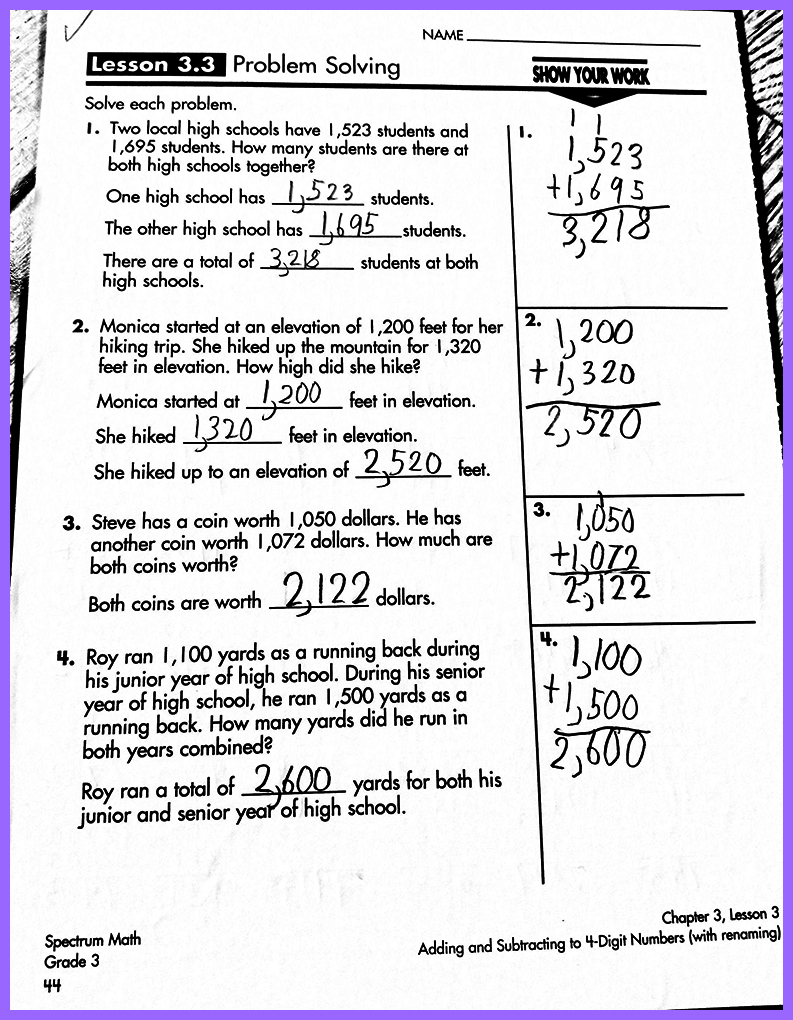 NAME
Lesson 3.3 Problem Solving
SHOW YOUR WORK
Solve each problem.
1. Two local high schools have 1,523 students and
1,695 students. How many students are there at
both high schools together?
One high school has 1,523 students.
The other high school has 1,695 students.
There are a total of 3,218 students at both
high schools.
1.
1 1
1,523
+1,695
3,218
2. Monica started at an elevation of 1,200 feet for her
hiking trip. She hiked up the mountain for 1,320
feet in elevation. How high did she hike?
Monica started at 1,200 feet in elevation.
She hiked 1,320 feet in elevation.
She hiked up to an elevation of 2,520 feet.
2.
1,200
+1,320
2,520
3. Steve has a coin worth 1,050 dollars. He has
another coin worth 1,072 dollars. How much are
both coins worth?
Both coins are worth 2,122 dollars.
3.
1
1,050
+1,072
2,122
4. Roy ran 1,100 yards as a running back during
his junior year of high school. During his senior
year of high school, he ran 1,500 yards as a
running back. How many yards did he run in
both years combined?
Roy ran a total of 2,600 yards for both his
junior and senior year of high school.
4.
1,100
+1,500
2,600
Spectrum Math
Grade 3
44
Chapter 3, Lesson 3
Adding and Subtracting to 4-Digit Numbers (with renaming)